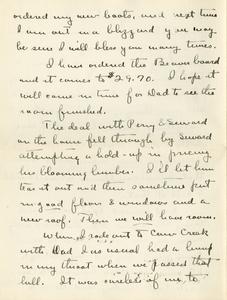 ordered my new boots, and next time
I am out in a blizzard you may
be sure I will bless you many times.
I have ordered the Beaver board
and it comes to $29.70. I hope it
will come in time for Dad to see the
room finished.
The deal with Perry & Seward
on the home fell through by Seward
attempting a hold-up in pricing
his blooming lumber. I'd let him
tear it out and then sometime put
in good floor & windows and a
new roof. Then we will have room.
When I rode out to Cow Creek
with Dad I as usual had a lump
in my throat when we passed that
hill. It was careless of me to